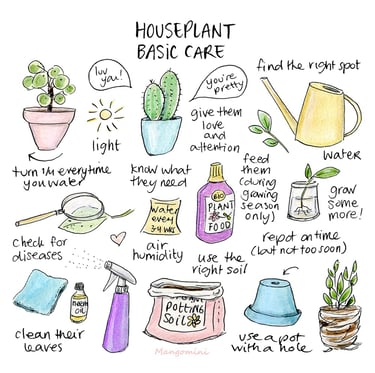 HOUSEPLANT
BASIC CARE
luv
you!
you're
pretty
find the right spot
light
give them
love
and
attention
water
turn 'm everytime
you water
know what
they need
feed
them
(during
growing
season
only)
BIO
PLANT
FOOD
water
every
3-4 wks
grow
some
more!
check for
diseases
air
humidity
use the
right soil
repot on time
(but not too soon)
neem
oil
Potting
Soil
clean their
leaves
use a pot
with a hole
Mangomini